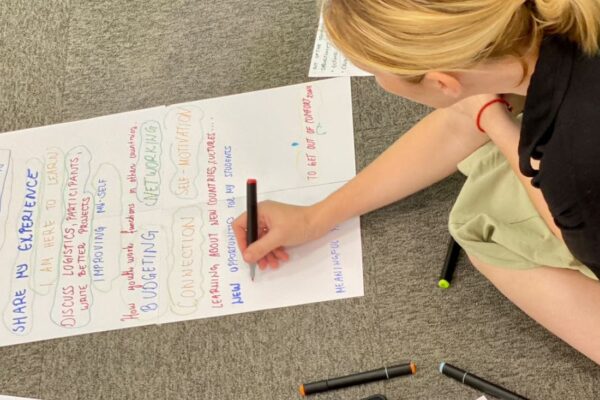 SHARE MY EXPERIENCE
I AM HERE TO LEARN
DISCUSS LOGISTICS, PARTICIPANTS,
WRITE BETTER PROJECTS
IMPROVING MY-SELF
How youth work functions in other countries.
BUDGETING
NETWORKING
CONNECTION
SELF-MOTIVATION
LEARNING ABOUT NEW COUNTRIES, CULTURES...
NEW OPPORTUNITIES FOR MY STUDENTS
TO GET OUT OF COMFORT ZONE
MEANINGFUL